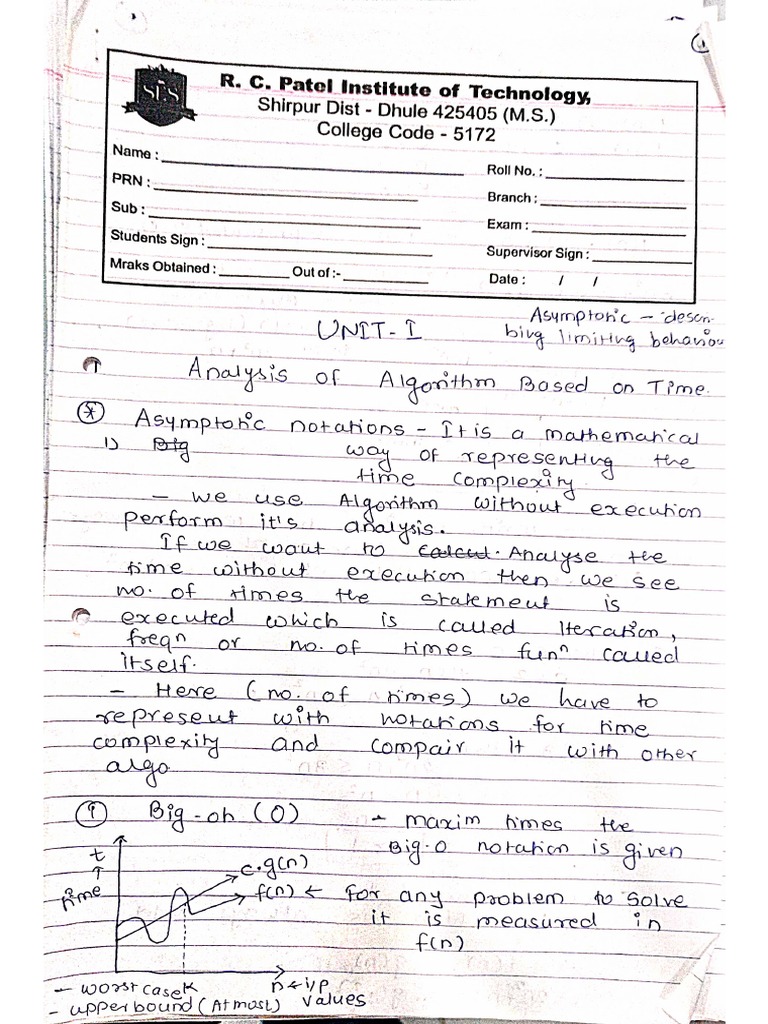 R. C. Patel Institute of Technology,
Shirpur Dist - Dhule 425405 (M.S.)
College Code - 5172
Name :
Roll No. :
PRN :
Branch :
Sub :
Exam :
Students Sign :
Supervisor Sign :
Mraks Obtained : Out of :-
Date : / /
UNIT-I
Asymptotic - descri-
bing limiting behaviou
Analysis of Algorithm Based on Time.
* Asymptotic notations - It is a mathematical
1) Big way of representing the
time complexity
- we use Algorithm without execution
perform it's analysis.
If we want to Calcul. Analyse the
time without execution then we see
no. of times the statement is
executed which is called Iteration,
freqn or no. of times funn called
itself.
- Here (no. of times) we have to
represent with notations for time
complexity and compair it with other
algo
1 Big-oh (O) - maxim times the
Big-O notation is given
t
↑
time
c.g(n)
f(n) ← For any problem to solve
it is measured in
f(n)
k
n ← i/p
values
- worst case
- upper bound (At most)